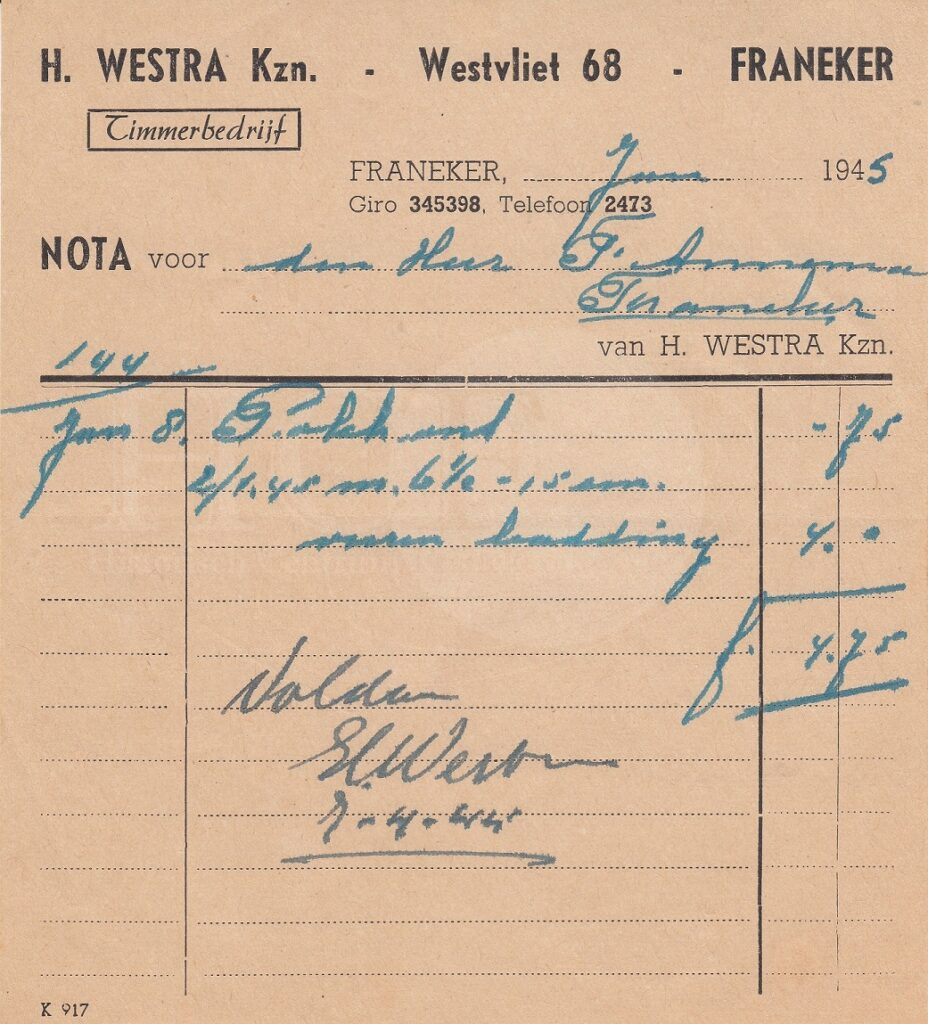 H. WESTRA Kzn. - Westvliet 68 - FRANEKER
Timmerbedrijf
FRANEKER, Jan 1945
Giro 345398, Telefoon 2473
NOTA voor den Heer F. Annema
Franeker
van H. WESTRA Kzn.
144
Jan 8. - 75
2/1.45 m. 6½ - 15 cm.
vuren badding 4. -
f. 4.75
Voldaan
H. Westra
K 917